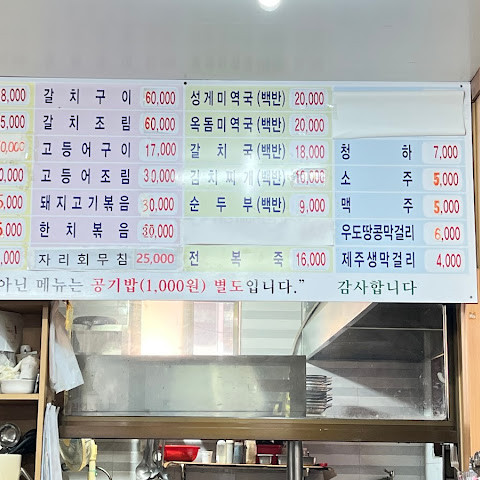 8,000 갈치구이 60,000 성게미역국(백반) 20,000
5,000 갈치조림 60,000 옥돔미역국(백반) 20,000
0,000 고등어구이 17,000 갈치국(백반) 18,000 청하 7,000
0,000 고등어조림 30,000 김치찌개(백반) 10,000 소주 5,000
5,000 돼지고기볶음 30,000 순두부(백반) 9,000 맥주 5,000
5,000 한치볶음 30,000 우도땅콩막걸리 6,000
,000 자리회무침 25,000 전복죽 16,000 제주생막걸리 4,000
아닌 메뉴는 공기밥(1,000원) 별도입니다.” 감사합니다